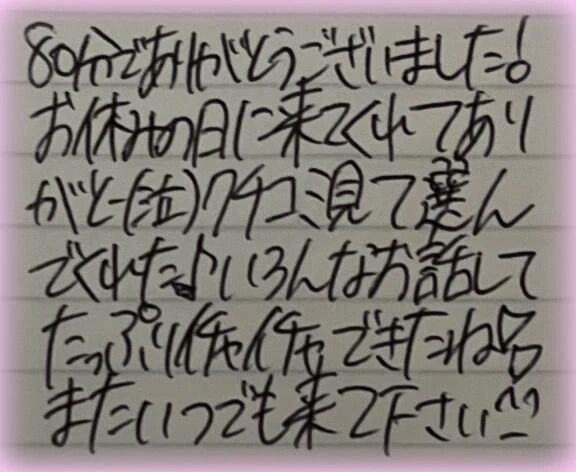 80分でありがとうございました!
お休みの日に来てくれてあり
がと-(泣)クチコミ見て選ん
でくれた♪いろんなお話して
たっぷりイチャイチャできたね♡♡
またいつでも来て下さい^^